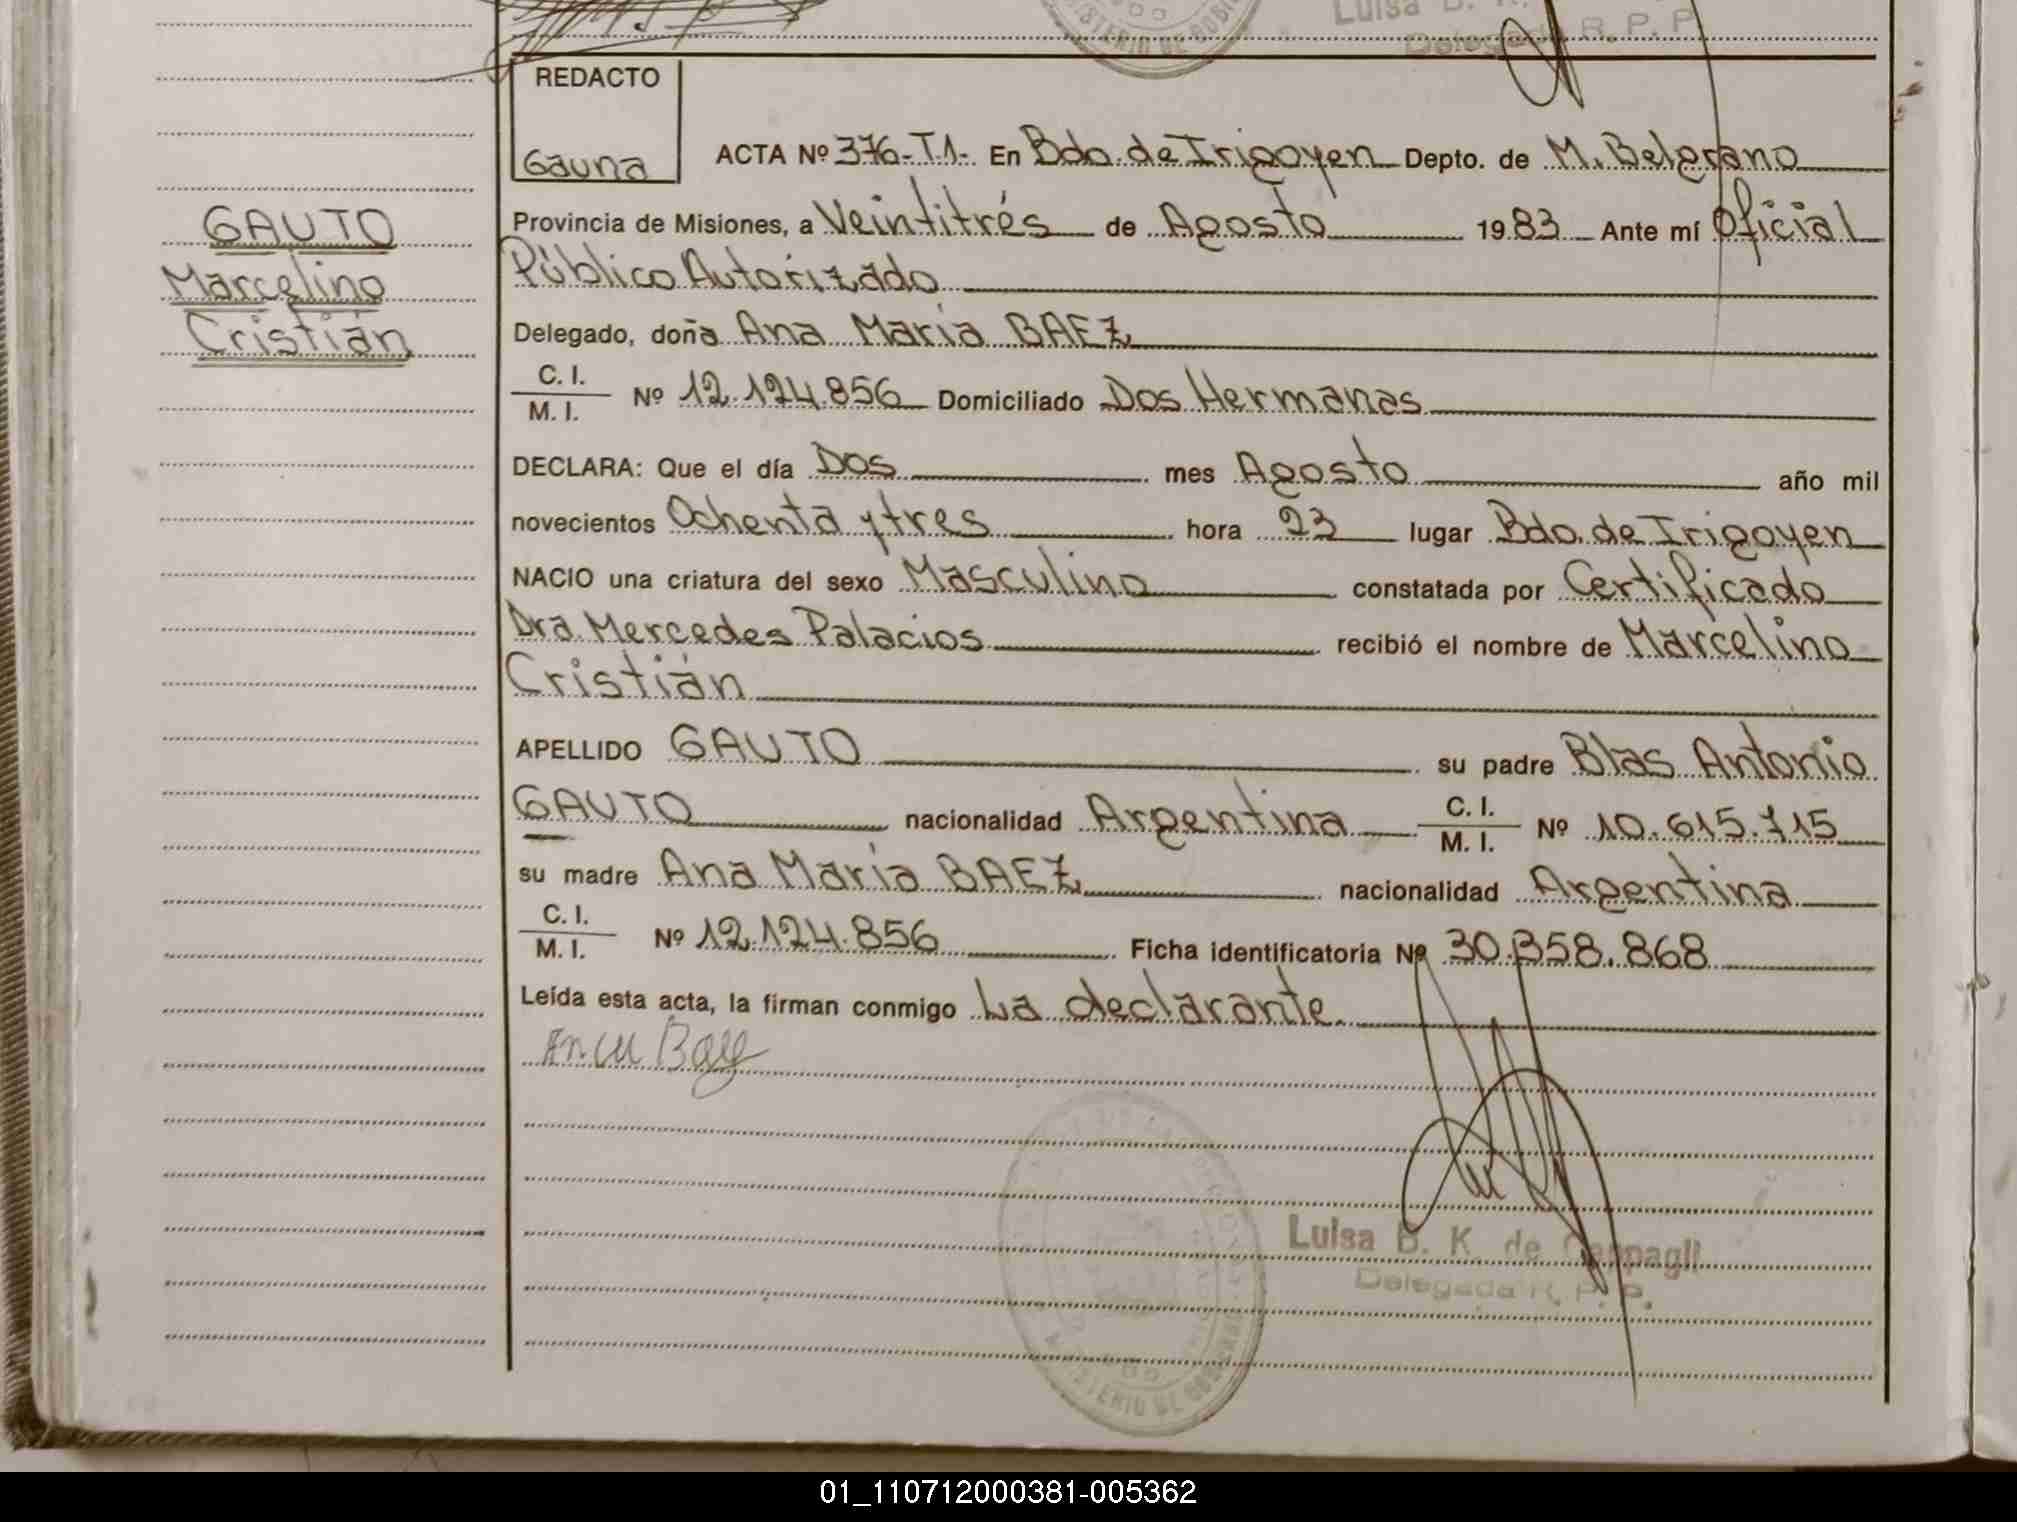 Luisa B. K.
MINISTERIO DE GOBIERNO
Delegada R. P. P.
REDACTO
Gauna
ACTA Nº 376-T1- En Bdo. de Irigoyen Depto. de M. Belgrano
Provincia de Misiones, a Veintitrés de Agosto 1983 Ante mí Oficial
Público Autorizado
Delegado, doña Ana María BAEZ
C. I.
M. I. Nº 12.124.856 Domiciliado Dos Hermanas
DECLARA: Que el día Dos mes Agosto año mil
novecientos Ochenta y tres hora 23 lugar Bdo. de Irigoyen
NACIO una criatura del sexo Masculino constatada por Certificado
Dra Mercedes Palacios recibió el nombre de Marcelino
Cristián
APELLIDO GAUTO su padre Blas Antonio
GAUTO nacionalidad Argentina C. I.
M. I. Nº 10.615.715
su madre Ana María BAEZ nacionalidad Argentina
C. I.
M. I. Nº 12.124.856 Ficha identificatoria Nº 30.358.868
Leída esta acta, la firman conmigo La declarante.
GAUTO
Marcelino
Cristián
Luisa B. K. de
Delegada R. P. P.
MINISTERIO DE GOBIERNO
01_110712000381-005362